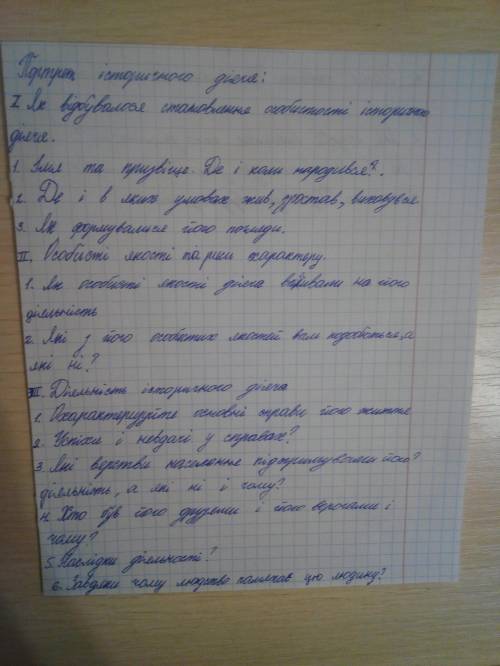 Портрет історичного діяча:
I Як відбувалося становлення особистості історичного
діяча.
1. Імя та призвіще. Де і коли народився?.
2. Де і в яких умовах жив, зростав, виховувся
3. Як формувалися його погляди.
II. Особисті якості та риси характеру.
1. Як особисті якості діяча впливали на його
діяльність
2. Які з його особистих якостей вам подобаються, а
які ні?
III. Діяльність історичного діяча
1. Охарактеризуйте основні справи його життя
2. Успіхи і невдачі у справах?
3. Які верстви населення підтримували його?
діяльність, а які ні і чому?
4. Хто був його друзями і його ворогами і
чому?
5. Наслідки діяльності?
6. Завдяки чому людство памятає цю людину?